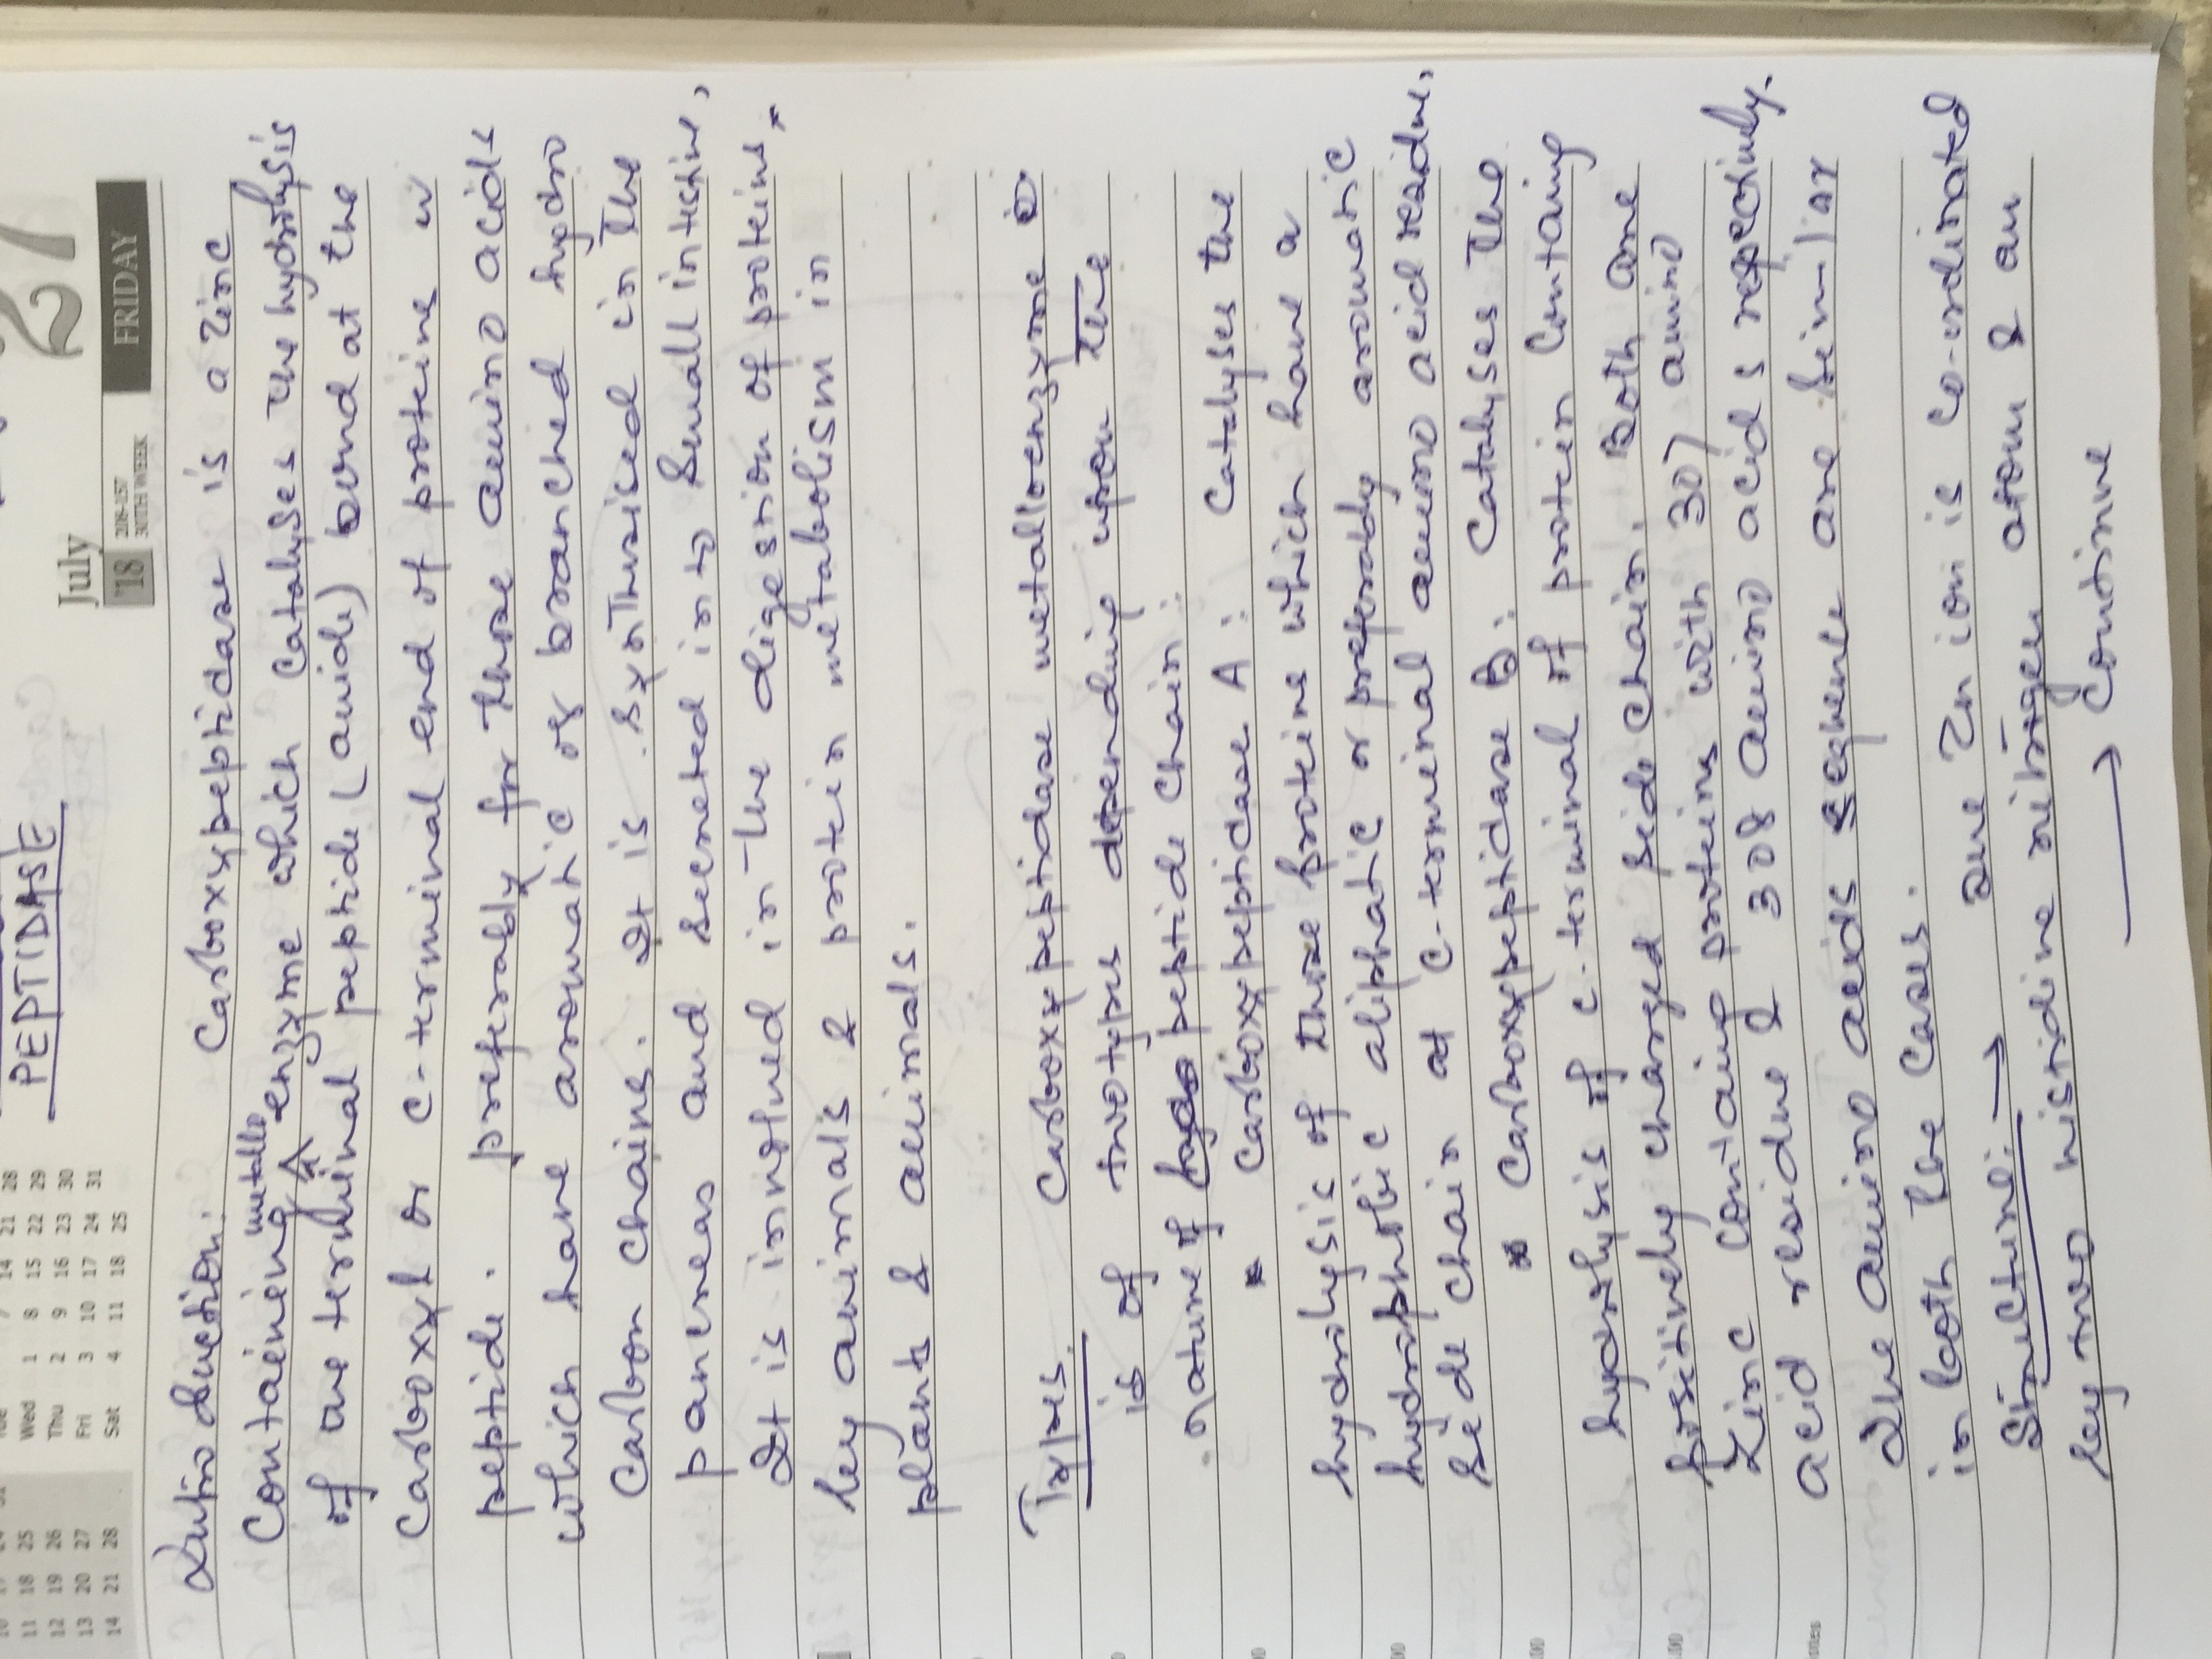 PEPTIDASE
July
27
'18
208-157
30TH WEEK
FRIDAY
Wed 1 8 15 22 29
Thu 2 9 16 23 30
Fri 3 10 17 24 31
Sat 4 11 18 25
11 18 25
12 19 26
13 20 27
14 21 28
Introduction: Carboxypeptidase is a zinc
metallo
Containing enzyme which Catalyses the hydrolysis
of the terminal peptide (amide) bond at the
Carboxyl or C-terminal end of proteins or
peptide. preferably for those amino acids
which have aromatic or branched hydro
Carbon chains. It is synthesised in the
pancreas and secreted into small intestine,
It is involved in the digestion of proteins,
by animals & protein metabolism in
plants & animals.
Types. Carboxypeptidase metalloenzyme
is of two types depending upon the
nature of peptide chain:
Carboxypeptidase A: Catalyses the
hydrolysis of those proteins which have a
hydrophobic aliphatic or preferably aromatic
side chain at C-terminal amino acid residue,
Carboxypeptidase B: Catalyses the
hydrolysis of C-terminal of protein Containing
positively charged side chain. Both are
Zinc containing proteins with 307 amino
acid residue & 308 amino acids respectively.
The amino acids sequence are similar
in both the cases.
Structure: → The Zn ion is co-ordinated
by two histidine nitrogen atom & an
→ Continue